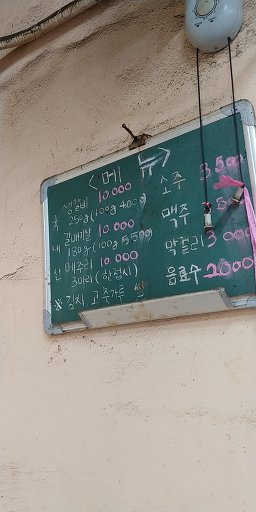 <메뉴>
국 내 산
생갈비 10.000
250g(100g 4.00
갈매기살 10.000
180g(100g 5,500)
메추리 10.000
3마리(한접시)
※ 김치, 고춧가루
소주 3,500
맥주
막걸리 3 000
음료수 2000